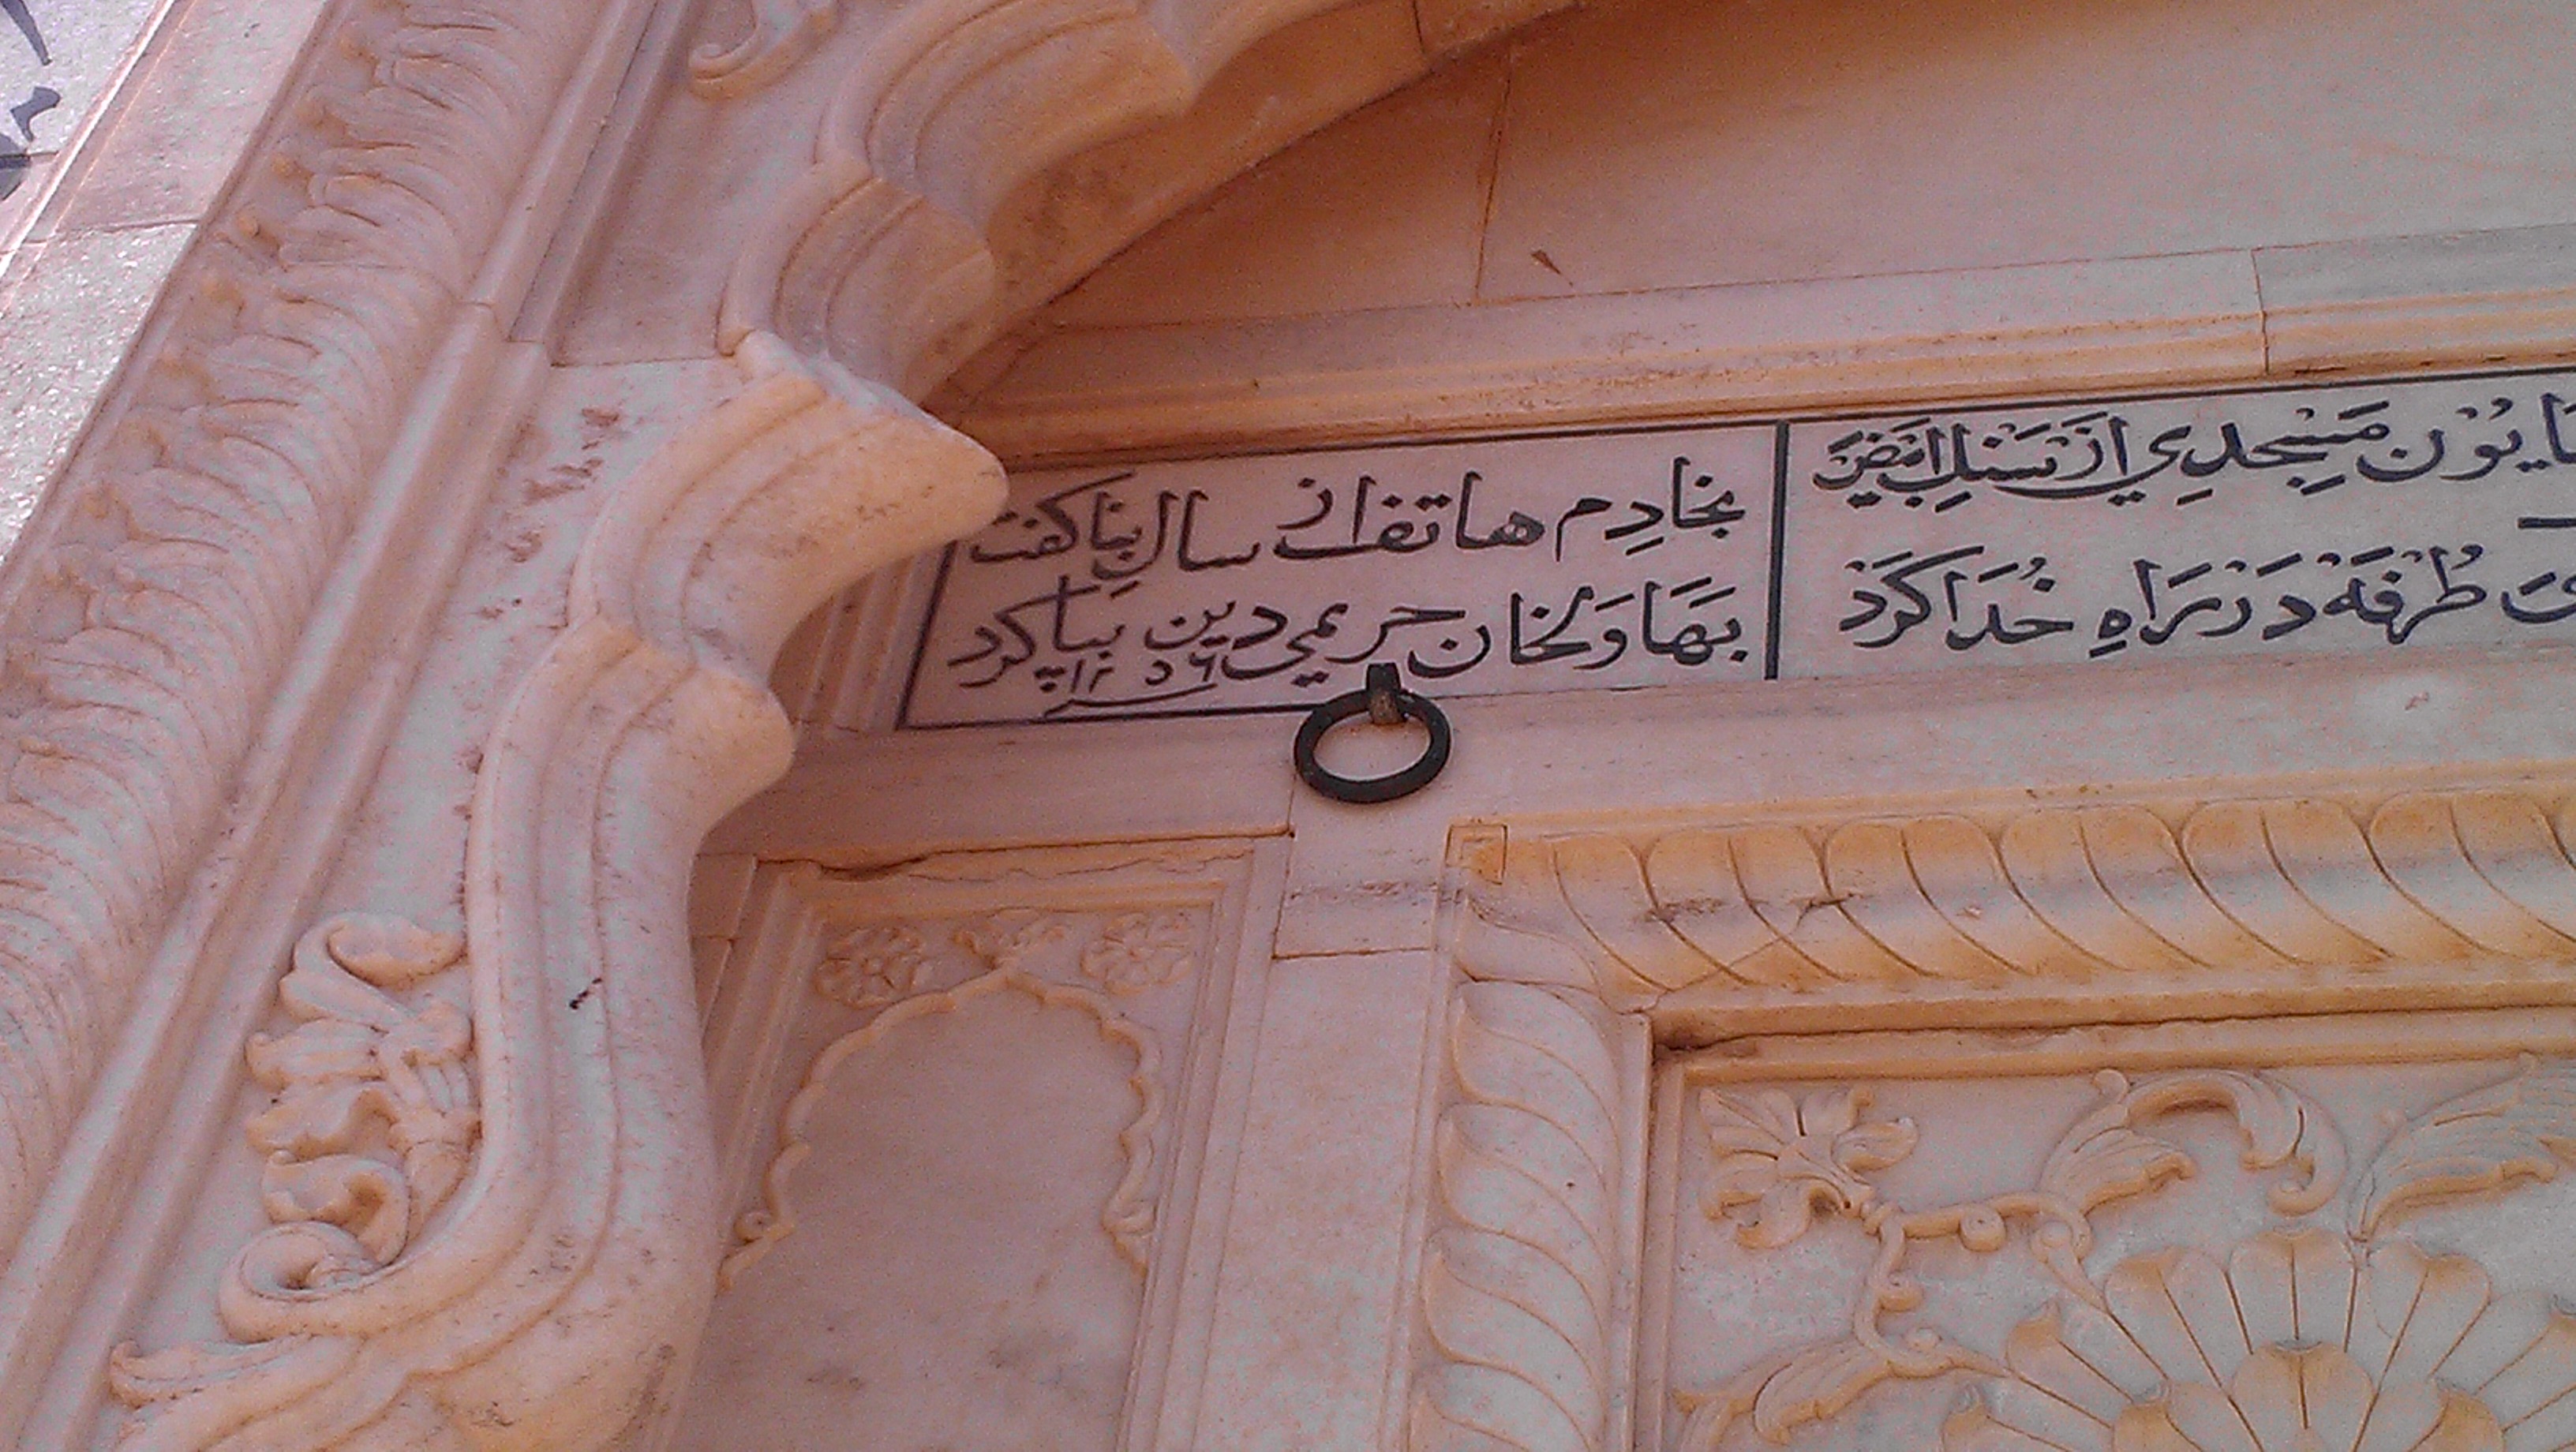 مَسْجِدِي اَزْ سَنْگِ اَبْيَضْ
طُرْفَهْ دَرْ رَاهِ خُدَا كَرَدْ
بخادِم هاتف از سالِ بنا گفت
بَهَاوَلخان حريمي دين بپا كرد
سنہ ۱۲۵۶